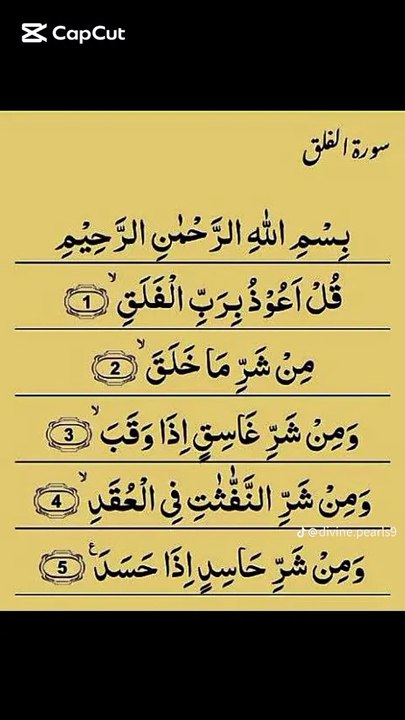 CapCut
سورة الفلق
بِسْمِ اللهِ الرَّحْمٰنِ الرَّحِيْمِ
قُلْ اَعُوْذُ بِرَبِّ الْفَلَقِ ۙ 1
مِنْ شَرِّ مَا خَلَقَ ۙ 2
وَمِنْ شَرِّ غَاسِقٍ اِذَا وَقَبَ ۙ 3
وَمِنْ شَرِّ النَّفّٰثٰتِ فِي الْعُقَدِ ۙ 4
@divine.pearls9
وَمِنْ شَرِّ حَاسِدٍ اِذَا حَسَدَ ۧ 5